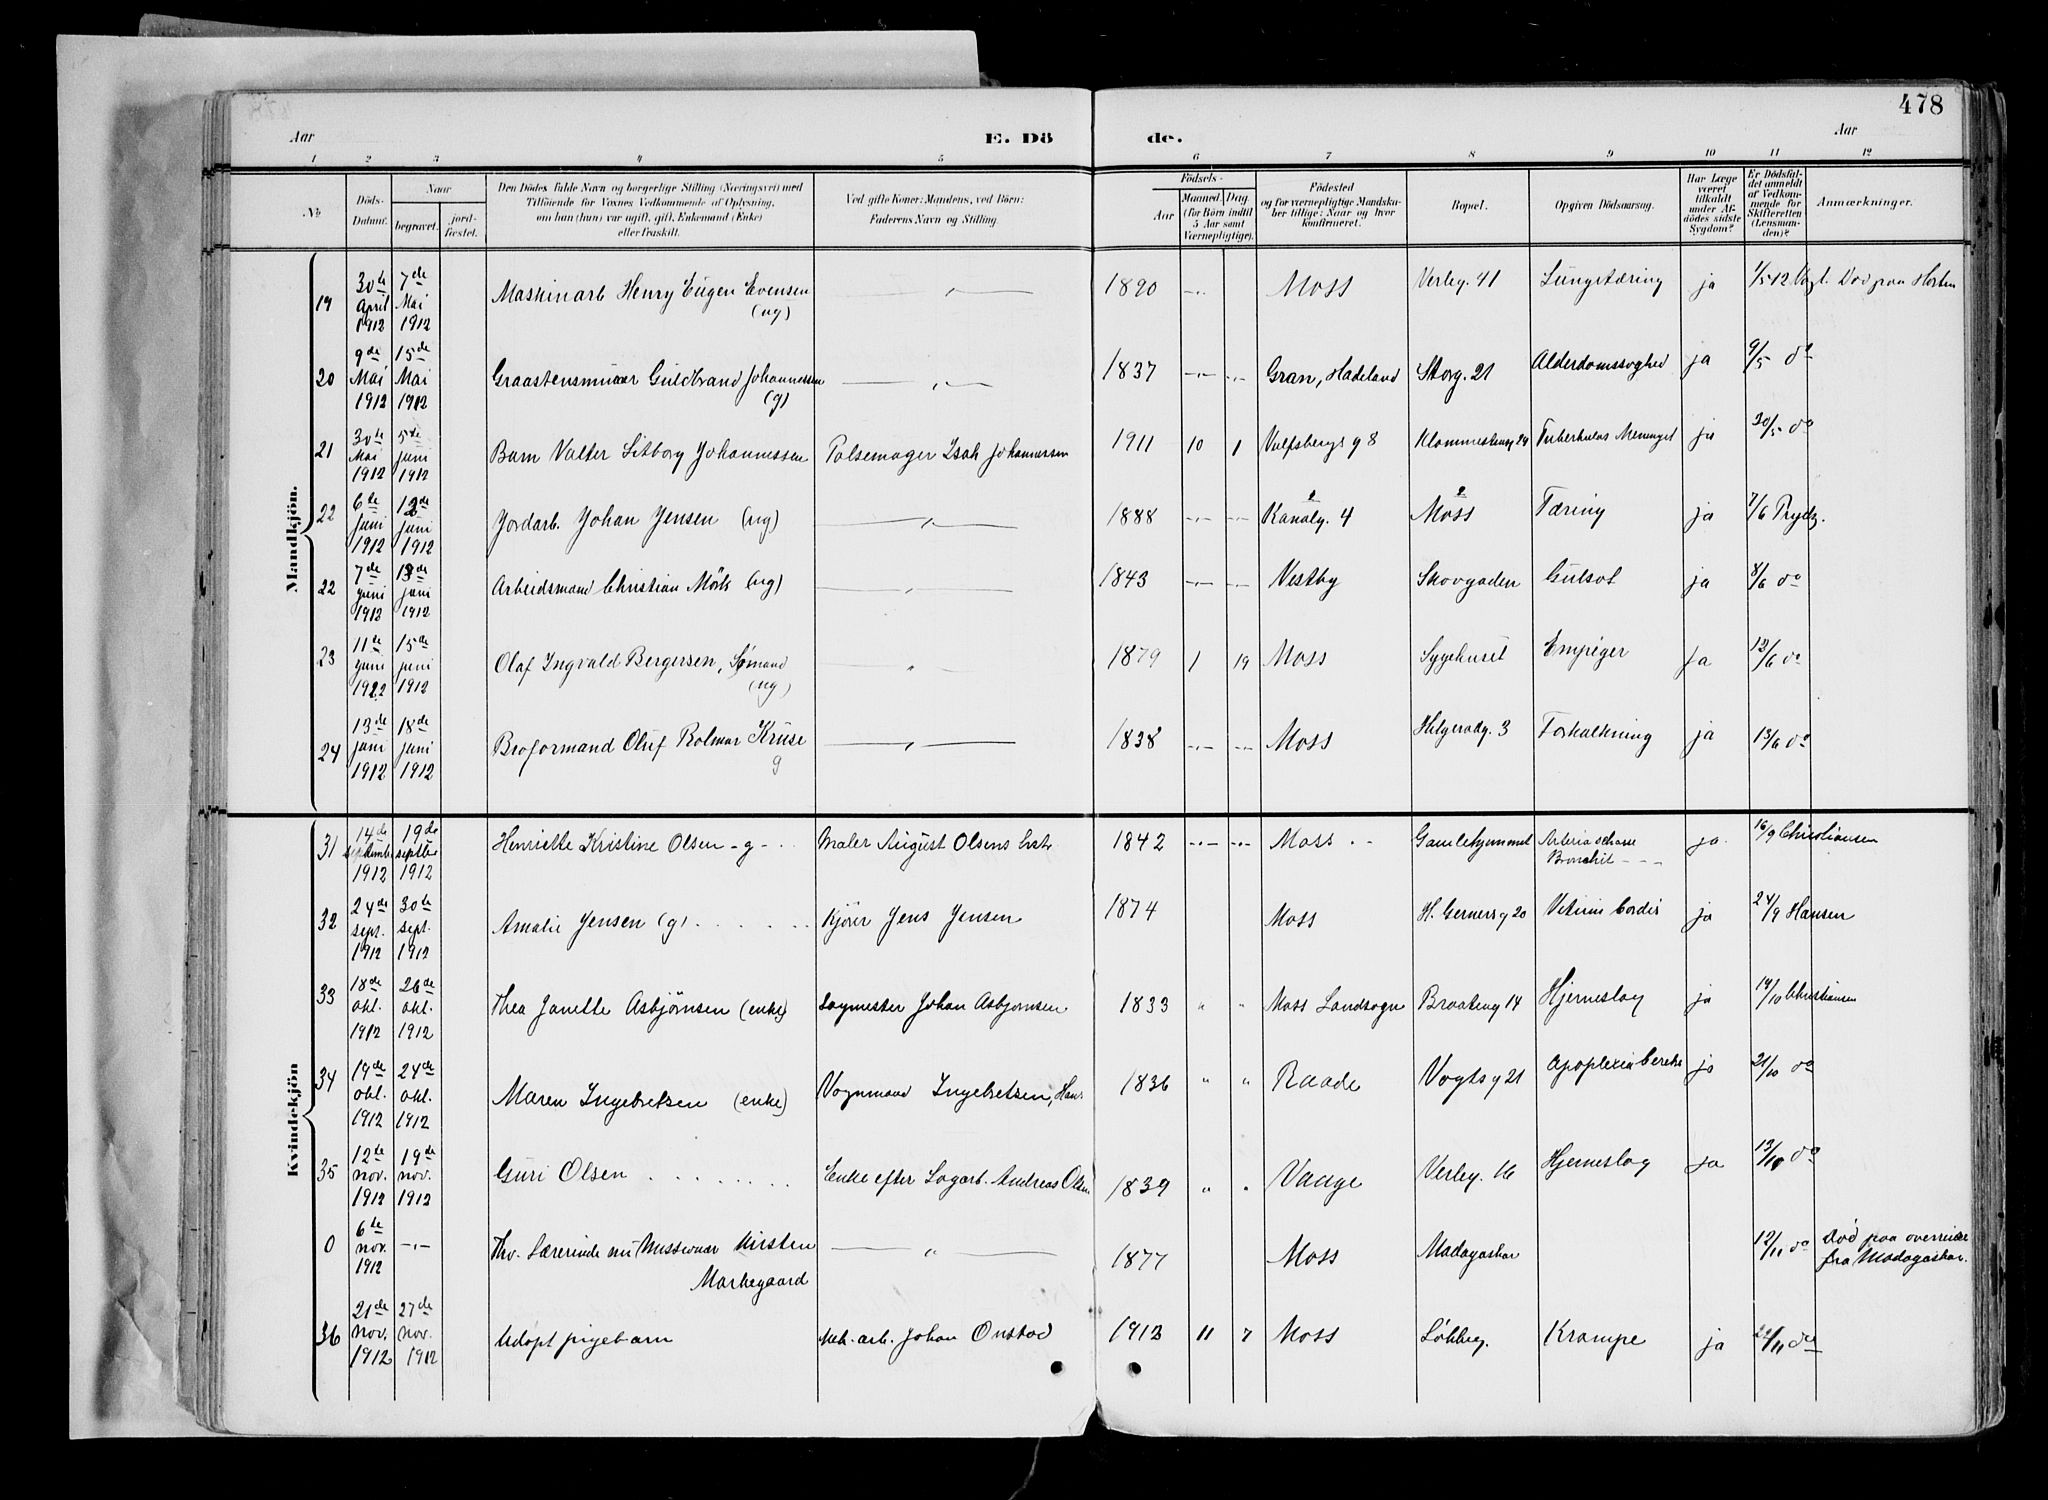 478
Aar
E. Dö
de.
Aar
1 2 3 4 5 6 7 8 9 10 11 12
No
Döds-Datum.
Naar
begravet.
jord-fæstet.
Den Dödes fulde Navn og borgerlige Stilling (Næringsvei) med
Tilföiende for Voxnes Vedkommende af Oplysning,
om han (hun) var ugift, gift, Enkemand (Enke)
eller fraskilt.
Ved gifte Koner: Mandens, ved Börn:
Faderens Navn og Stilling.
Födsels-
Aar
Maaned. Dag.
(for Börn indtil
5 Aar samt
Værnepligtige).
Födested
og for værnepligtige Mandska-
ber tillige: Naar og hvor
konfirmeret.
Bopæl.
Opgiven Dödsaarsag.
Har Læge
været
tilkaldt
under Af-
dödes sidste
Sygdom?
Er Dödsfal-
det anmeldt
af Vedkom-
mende for
Skifteretten
(Lensman-
den)?
Anmærkninger.
Mandkjön.
19 30te April 1912 7de Mai 1912 Maskinarb Henry Eugen Evensen (ug) 1890 Moss Verleg. 41 Lungetæring ja 1/5 12 Vogt. Død paa Horten
20 9de Mai 1912 15de Mai 1912 Graastensmurer Guldbrand Johannessen (g) 1837 Gran, Hadeland Storg. 21 Alderdomssvaghed ja 9/5 do
21 30te Mai 1912 5te juni 1912 Barn Valter Sitborg Johannessen Pølsemager Isak Johannessen 1911 10 1 Vulfsbergs g 8 Klommesteng 24 Tuberkuløs Meninget ja 30/5 do
22 6te juni 1912 12de juni 1912 Jordarb. Johan Jensen (ug) 1888 Kanalg. 4 Moss Tæring ja 7/6 Prydz.
22 7de juni 1912 13de juni 1912 Arbeidsmand Christian Mörk (ug) 1843 Vestby Skovgaden Gulsot ja 8/6 do
23 11te juni 1922 15de juni 1912 Olaf Ingvald Bergersen, Sømand (ug) 1879 1 19 Moss Sygehuset Empiger ja 12/6 do
24 13de juni 1912 18de juni 1912 Broformand Oluf Rolmar Kruse g 1838 Moss Helgerødg. 3 Forkalkning ja 13/6 do
Kvindekjön
31 14de septembr 1912 19de septbr 1912 Henriette Kristine Olsen - g - Maler August Olsens hustr 1842 Moss Gamlehjemmet Bronchit ja 16/9 Christiansen
32 24de sept. 1912 30te sept. 1912 Amalie Jensen (g) Kjører Jens Jensen 1874 Moss H. Gerners g 20 Vitium Cordis ja 24/9 Hansen
33 18de okt. 1912 26de okt. 1912 Thea Janette Asbjørnsen (enke) Sagmester Johan Asbjørnsen 1833 " " Moss Landsogn Braateng 14 Hjerneslag ja 19/10 Christiansen
34 19de okt. 1912 24de okt. 1912 Maren Ingebretsen (enke) Vognmand Ingebretsen, Hans 1836 " " Raade Vogts g 21 Apoplexia Cerebr ja 21/10 do
35 12te nov. 1912 19de nov. 1912 Guri Olsen Enke efter Sagarb. Andreas Olsen 1839 " " Vaage Verleg. 16 Hjerneslag ja 13/11 do
0 6te nov. 1912 Fhv. Lærerinde nu Missionær Kirsten
Markegaard 1877 Moss Madagaskar 12/11 do Død paa overreise
fra Madagaskar.
36 21de nov. 1912 27de nov. 1912 Udøpt pigebarn Mek. arb. Johan Onstad 1912 11 7 Moss Løkkeg. Krampe ja 22/11 do